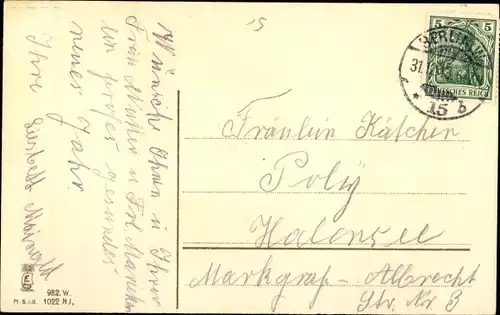 15
Wünsche Ihnen u Ihrer
Frau Mutter u Frl.
ein gesundes
neues Jahr.
Ihre
Fräulein Kätchen
Poly
Halensee
Markgraf-Albrecht
Str. Nr. 3
5 5
BERLIN.W.
31.
DEUTSCHES REICH
* 15 b
982. W.
M.S.i.B. 1022 N.J.